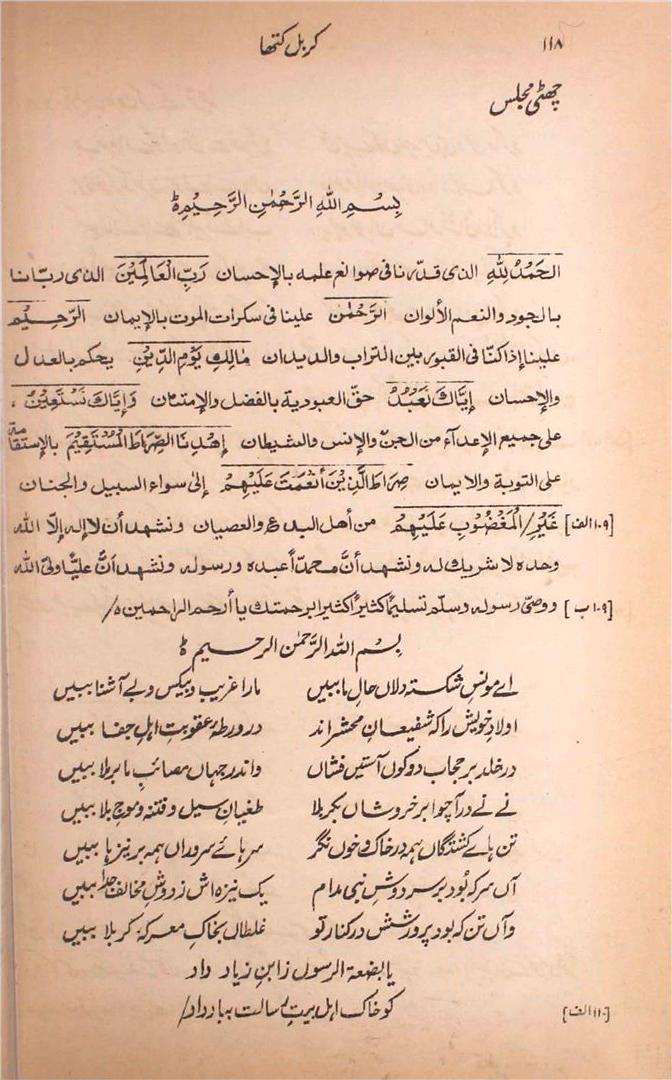 ۱۱۸
کربل کتھا
چھٹی مجلس
بِسْمِ اللهِ الرَّحْمٰنِ الرَّحِيْمِ ۵
الحَمْدُ لِلّٰهِ الذی قدّرنا فی صوانع علمه بالإحسان رَبِّ العَالَمِيْنَ الذی ربّانا
بالجود والنعم الألوان الرَّحْمٰنِ علینا فی سکرات الموت بالإیمان الرَّحِیْمِ
علینا إذا کنّا فی القبور بین التراب والدیدان مَالِكِ يَوْمِ الدِّيْنِ یحکم بالعدل
والإحسان إِيَّاكَ نَعْبُدُ حقّ العبودیة بالفضل والإمتنان وَإِيَّاكَ نَسْتَعِيْنُ ،
علی جمیع الإعدآء من الجنّ والإنس والشیطان إهْدِنَا الصِّرَاطَ المُسْتَقِيْمَ بالإستقامة
علی التوبة والایمان صِرَاطَ الَّذِيْنَ أَنْعَمْتَ عَلَيْهِمْ إلیٰ سواء السبیل والجنان
[۱۰۹ الف] غَيْرِ/الْمَغْضُوْبِ عَلَيْهِمْ من أهل البدع والعصیان ونشهد أن لا إله إلّا الله
وحده لا شریك له ونشهد أنَّ محمدًا عبده ورسوله ونشهد أنَّ علیًّا ولیّ الله
[۱۰۹ ب] ووصیّ رسوله وسلّم تسلیمًا کثیرًا کثیرًا برحمتك یا أرحم الراحمین ۵/
بسم الله الرحمٰن الرحیم ۵
اے مونسِ شکستہ دلاں حالِ ما ببیں مارا غریب و بیکس و بے آشنا ببیں
اولادِ خویش را کہ شفیعانِ محشر اند در ورطۂ عقوبتِ اہلِ جفا ببیں
در خلد بر حجاب دو کون آستیں فشاں واندر جہاں مصائبِ ما برملا ببیں
نے نے در آ چو ابر خروشاں بکربلا طغیانِ سیل و فتنہ و موجِ بلا ببیں
تن ہائے کشتگاں ہمہ در خاک و خوں نگر سرہائے سروراں ہمہ بر نیزہا ببیں
آں سر کہ بُود بر سرِ دوشِ نبی مدام یک نیزہ اش ز دوشِ مخالف جدا ببیں
وآں تن کہ بود پرورشش در کنار تو غلطاں بخاکِ معرکۂ کربلا ببیں
یا بضعة الرسول ز ابنِ زیاد داد
[۱۱۰ الف] کو خاکِ اہل بیتِ رسالت بباد داد/